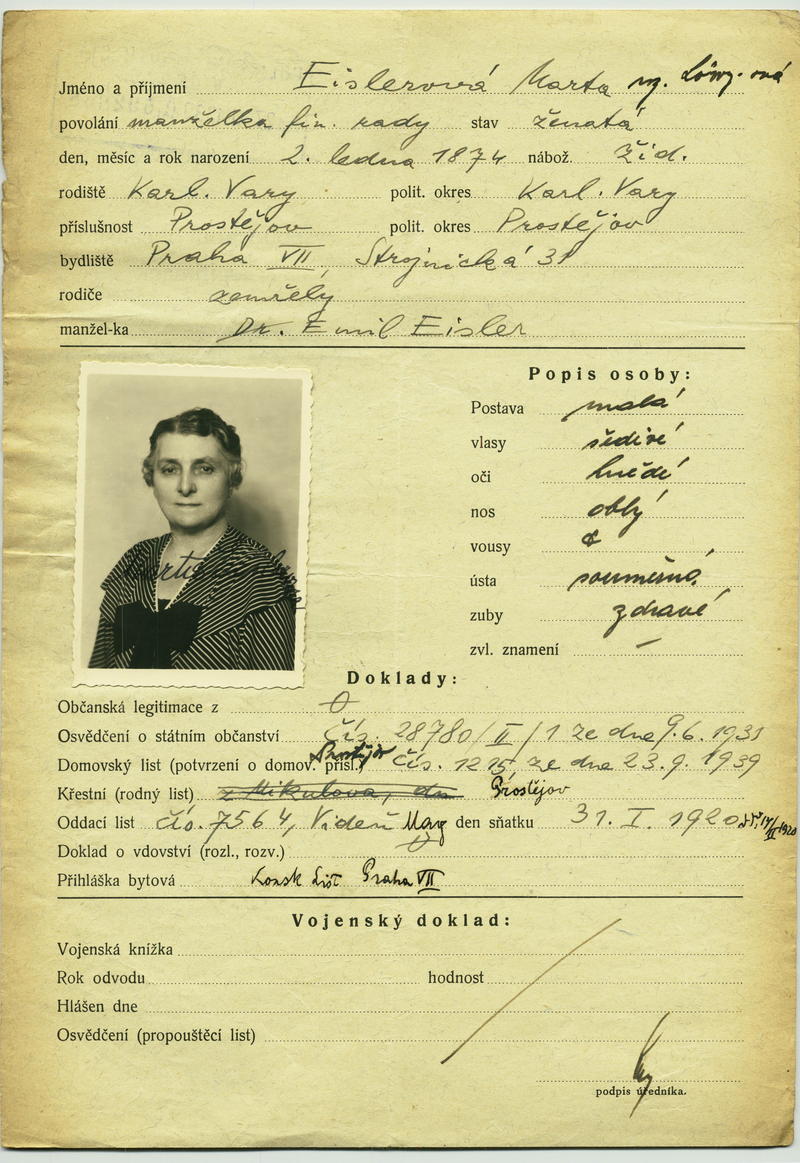 Jméno a příjmení Eislerová Marta
povolání manželka fin. rady stav ženatá
den, měsíc a rok narození 2. ledna 1874 nábož. žid.
rodiště Karl. Vary polit. okres Karl. Vary
příslušnost Prostějov polit. okres Prostějov
bydliště Praha VII, Strojnická 31
rodiče zemřelý
manžel-ka Dr. Emil Eisler
Popis osoby:
Postava malá
vlasy šedivé
oči hnědé
nos oblý
vousy
ústa souměrná
zuby zdravé
zvl. znamení —
Doklady:
Občanská legitimace z
Osvědčení o státním občanství čís. 28780/II/1 ze dne 9.6.1931
Domovský list (potvrzení o domov. přísl.) Prostějov čís. 1215 ze dne 23.9.1939
Křestní (rodný list) z Mikulova, dn Prostějov
Oddací list čís. 7564, Videň den sňatku 31. I. 1920
Doklad o vdovství (rozl., rozv.)
Přihláška bytová Konsk List Praha VII
Vojenský doklad:
Vojenská knížka
Rok odvodu hodnost
Hlášen dne
Osvědčení (propouštěcí list)
podpis úředníka.